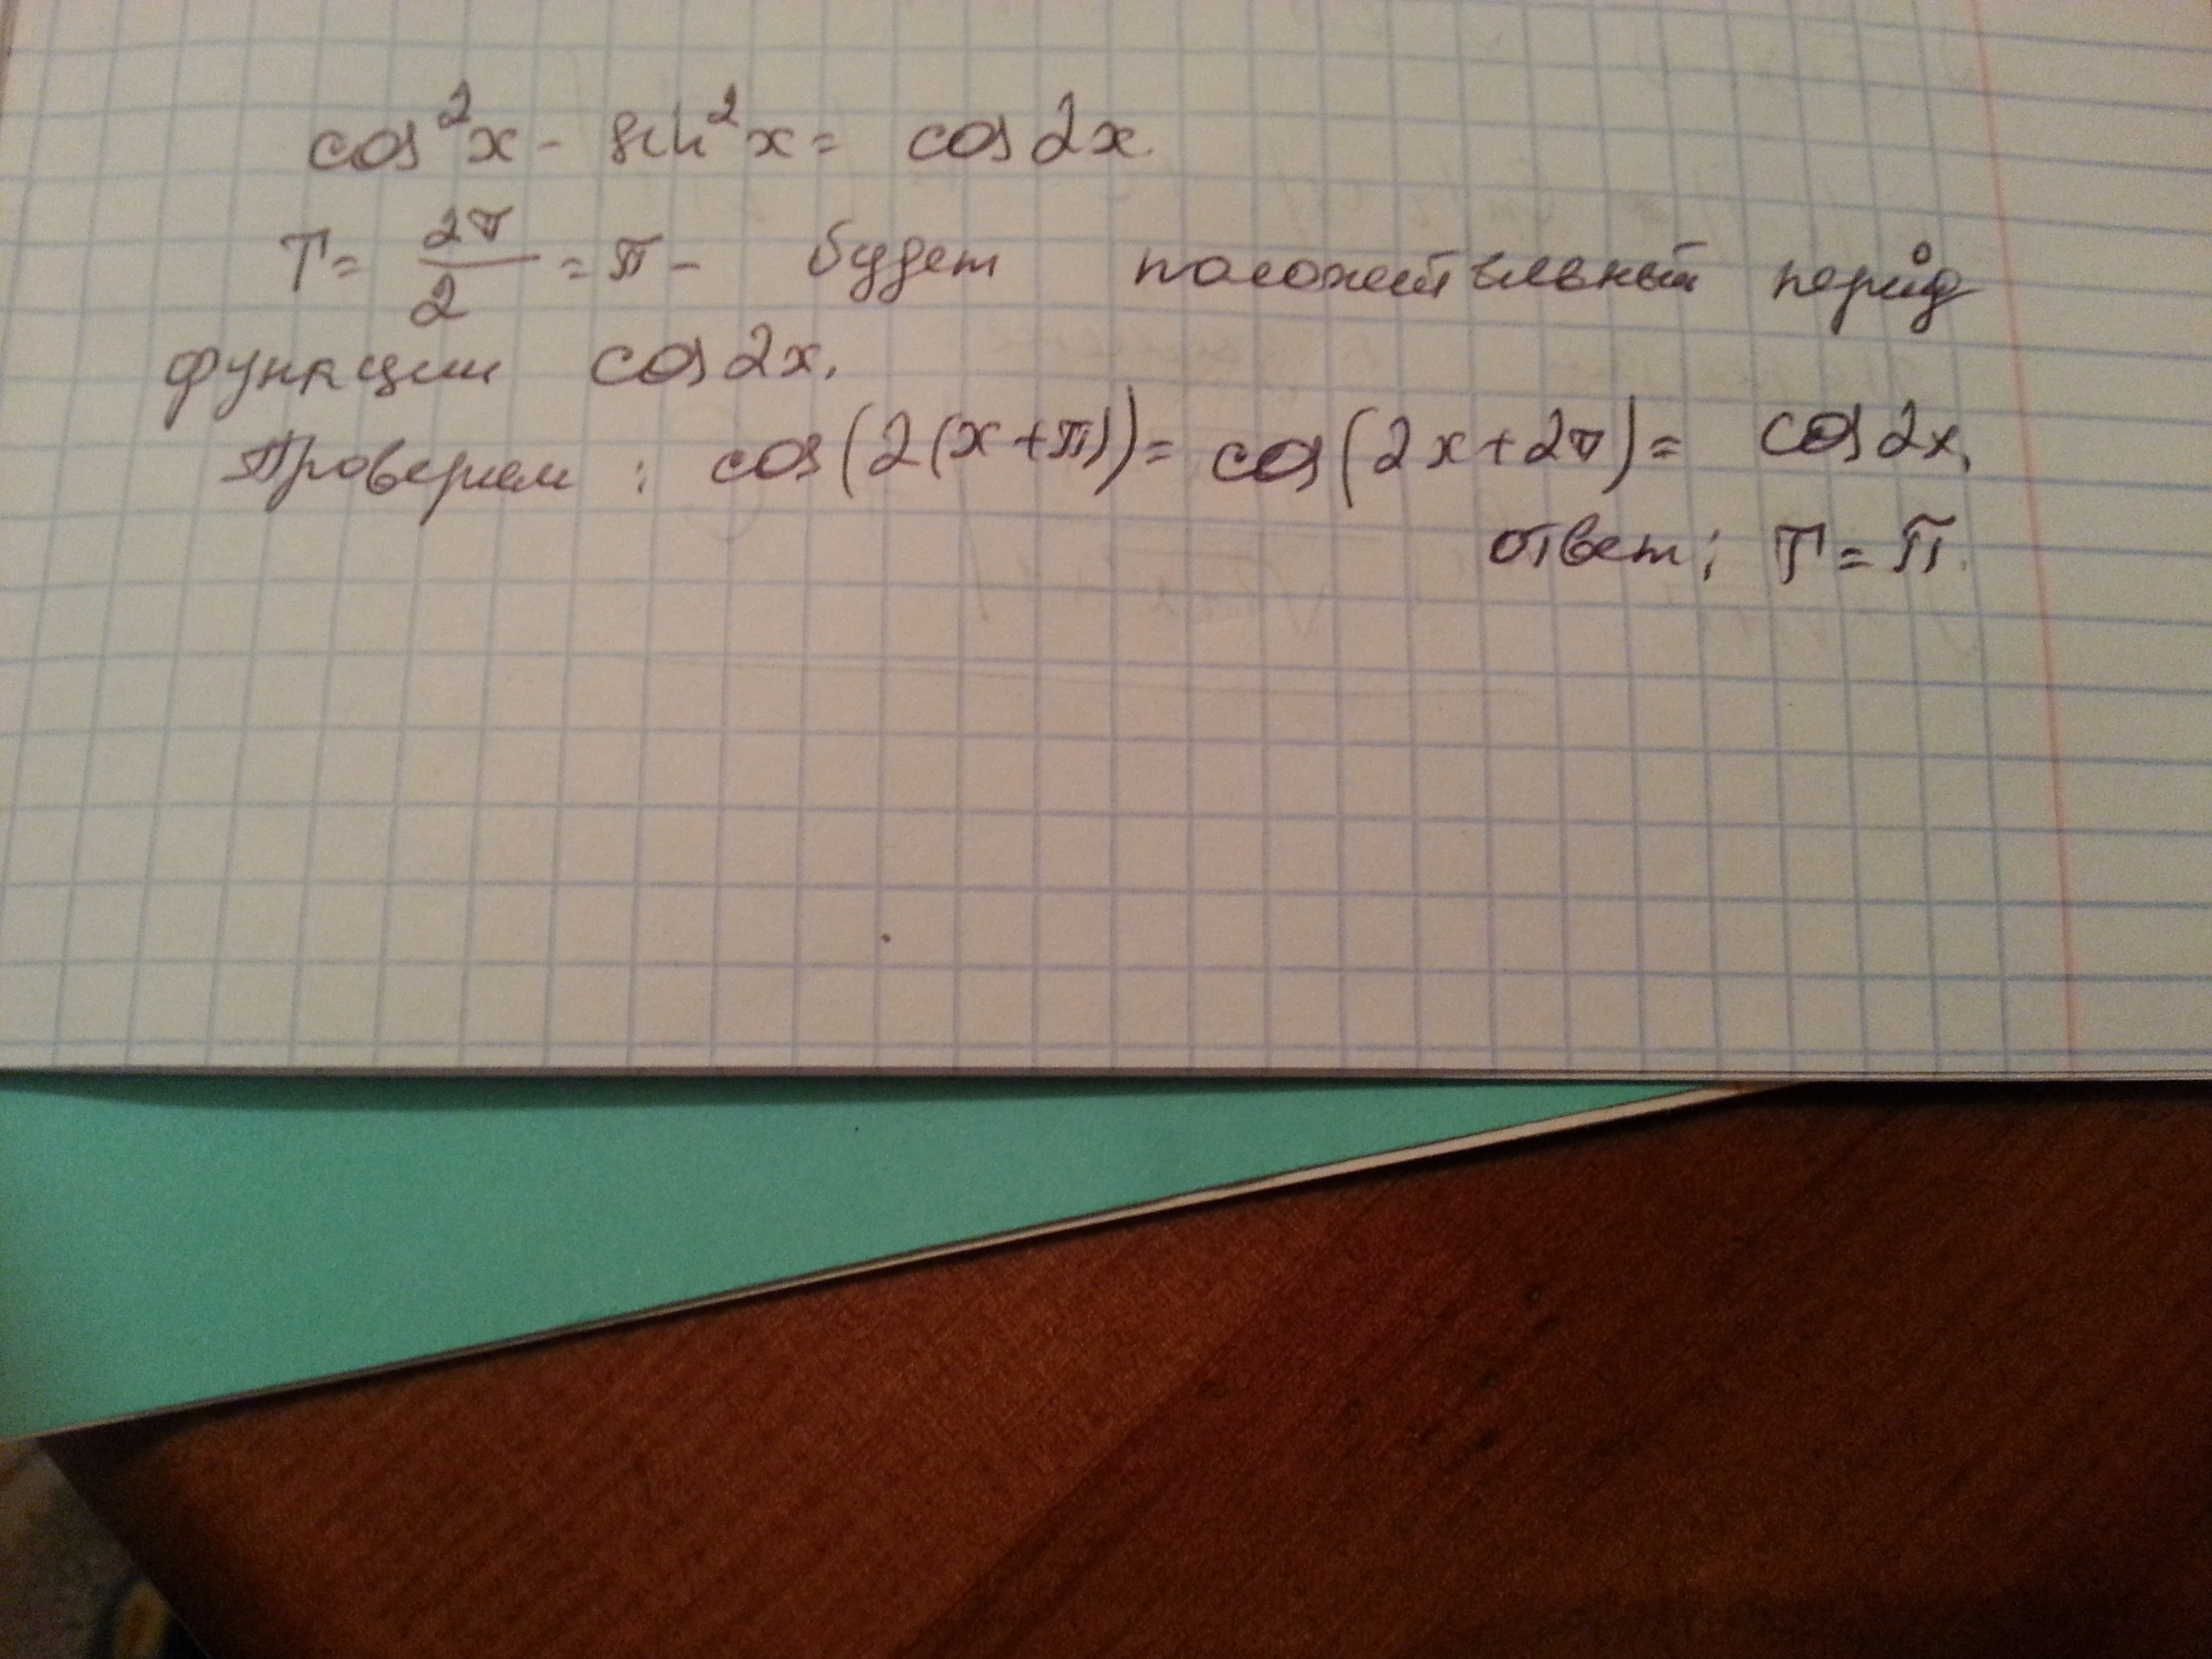 cos²x - sin²x = cos2x.
T = 2π/2 = π - будет положительный период
функции cos2x.
Проверим: cos(2(x+π)) = cos(2x+2π) = cos2x,
ответ: T = π.